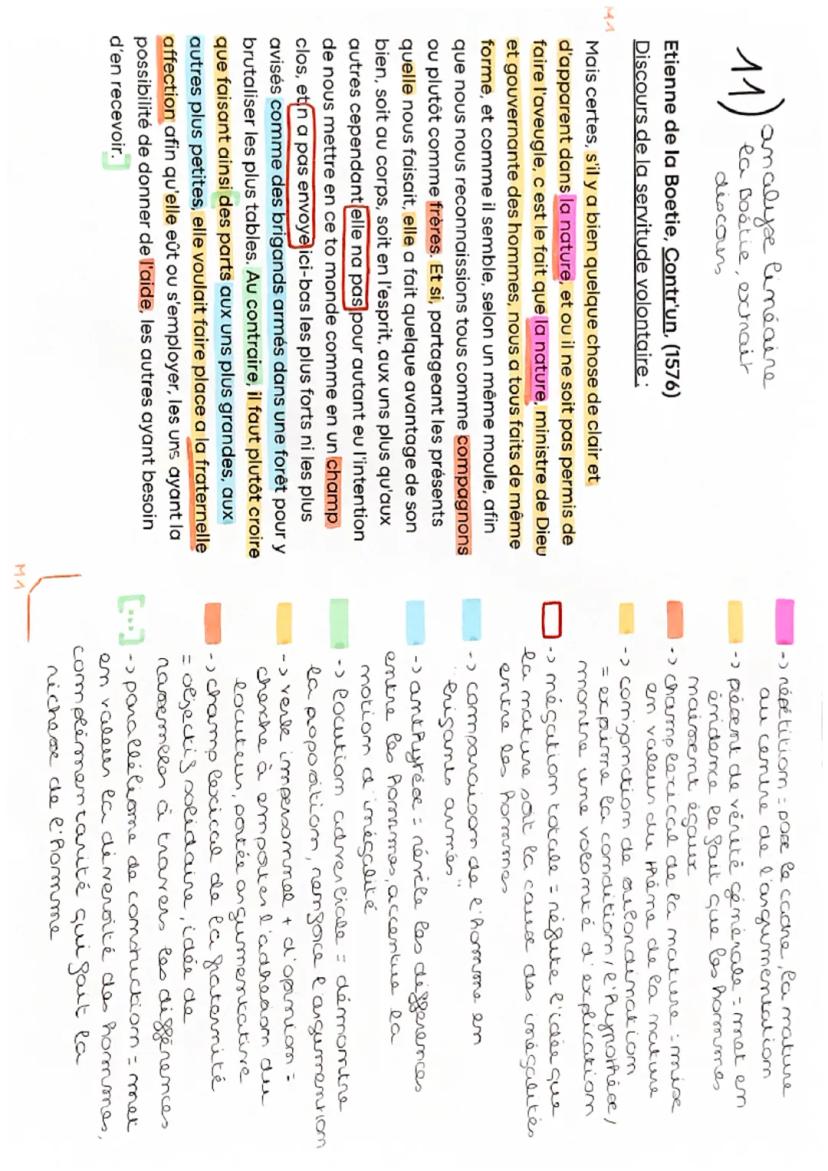 11) analyse linéaire
la Boétie, extrait
discours
Etienne de la Boetie, Contr'un, (1576)
Discours de la servitude volontaire :
M1
Mais certes, s'il y a bien quelque chose de clair et
d'apparent dans la nature, et ou il ne soit pas permis de
faire l'aveugle, c est le fait que la nature, ministre de Dieu
et gouvernante des hommes, nous a tous faits de même
forme, et comme il semble, selon un même moule, afin
que nous nous reconnaissions tous comme compagnons
ou plutôt comme frères. Et si, partageant les présents
quelle nous faisait, elle a fait quelque avantage de son
bien, soit au corps, soit en l'esprit, aux uns plus qu'aux
autres cependant elle na pas pour autant eu l'intention
de nous mettre en ce to monde comme en un champ
clos, et n a pas envoye ici-bas les plus forts ni les plus
avisés comme des brigands armés dans une forêt pour y
brutaliser les plus tables. Au contraire, il faut plutôt croire
que faisant ainsi des parts aux uns plus grandes, aux
autres plus petites, elle voulait faire place a la fraternelle
affection afin qu'elle eût ou s'employer, les uns ayant la
possibilité de donner de l'aide, les autres ayant besoin
d'en recevoir. ]
M1
-> répétition = pose le cadre, la nature
au centre de l'argumentation
-> présent de vérité générale = met en
évidence le fait que les hommes
naissent égaux
-> champ lexical de la nature = mise
en valeur du thème de la nature
-> conjonction de subordination
= exprime la condition / l'hypothèse /
montre une volonté d'explication
-> négation totale = réfute l'idée que
la nature soit la cause des inégalités
entre les hommes
-> comparaison de l'homme en
"brigants armés"
-> antithyrèse = révèle les différences
entre les hommes, accentue la
notion d'inégalité
-> locution adverciale = démontre
la proposition, renforce l'argumention
-> verbe impersonnel + d'opinion =
cherche à emporter l'adhésion du
locuteur, portée argumentative
-> champ lexical de la fraternité
= objectif solidaire, idée de
rassembler à travers les différences
[...] -> parallélisme de construction = met
en valeur la diversité des hommes,
complémentarité qui fait la
richesse de l'homme